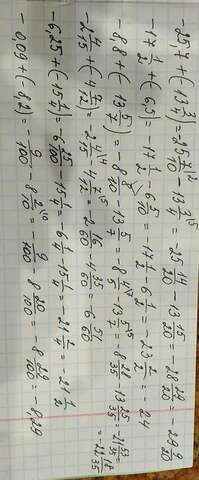 -25,7 + (-13 3/4) = 25 7/10 - 13 3/4 = 25 14/20 - 13 15/20 - 28 29/20 = -29 9/20
-17 1/2 + (-6,5) = -17 1/2 - 6 5/10 = 17 1/2 - 6 1/2 = -23 2/2 = -24
-8,8 + (-13 5/7) = -8 8/10 - 13 5/7 = -8 4/5 - 13 5/7 = -8 28/35 - 13 25/35 = -21 53/35 = -22 18/35
-2 4/15 + (-4 7/12) = -2 4/15 - 4 7/12 = -2 16/60 - 4 35/60 = -6 51/60
-6,25 + (-15 1/4) = -6 25/100 - 15 1/4 = -6 1/4 - 15 1/4 = -21 2/4 = -21 1/2
-0,09 + (-8,2) = -9/100 - 8 2/10 = -9/100 - 8 20/100 = -8 29/100 = -8,29